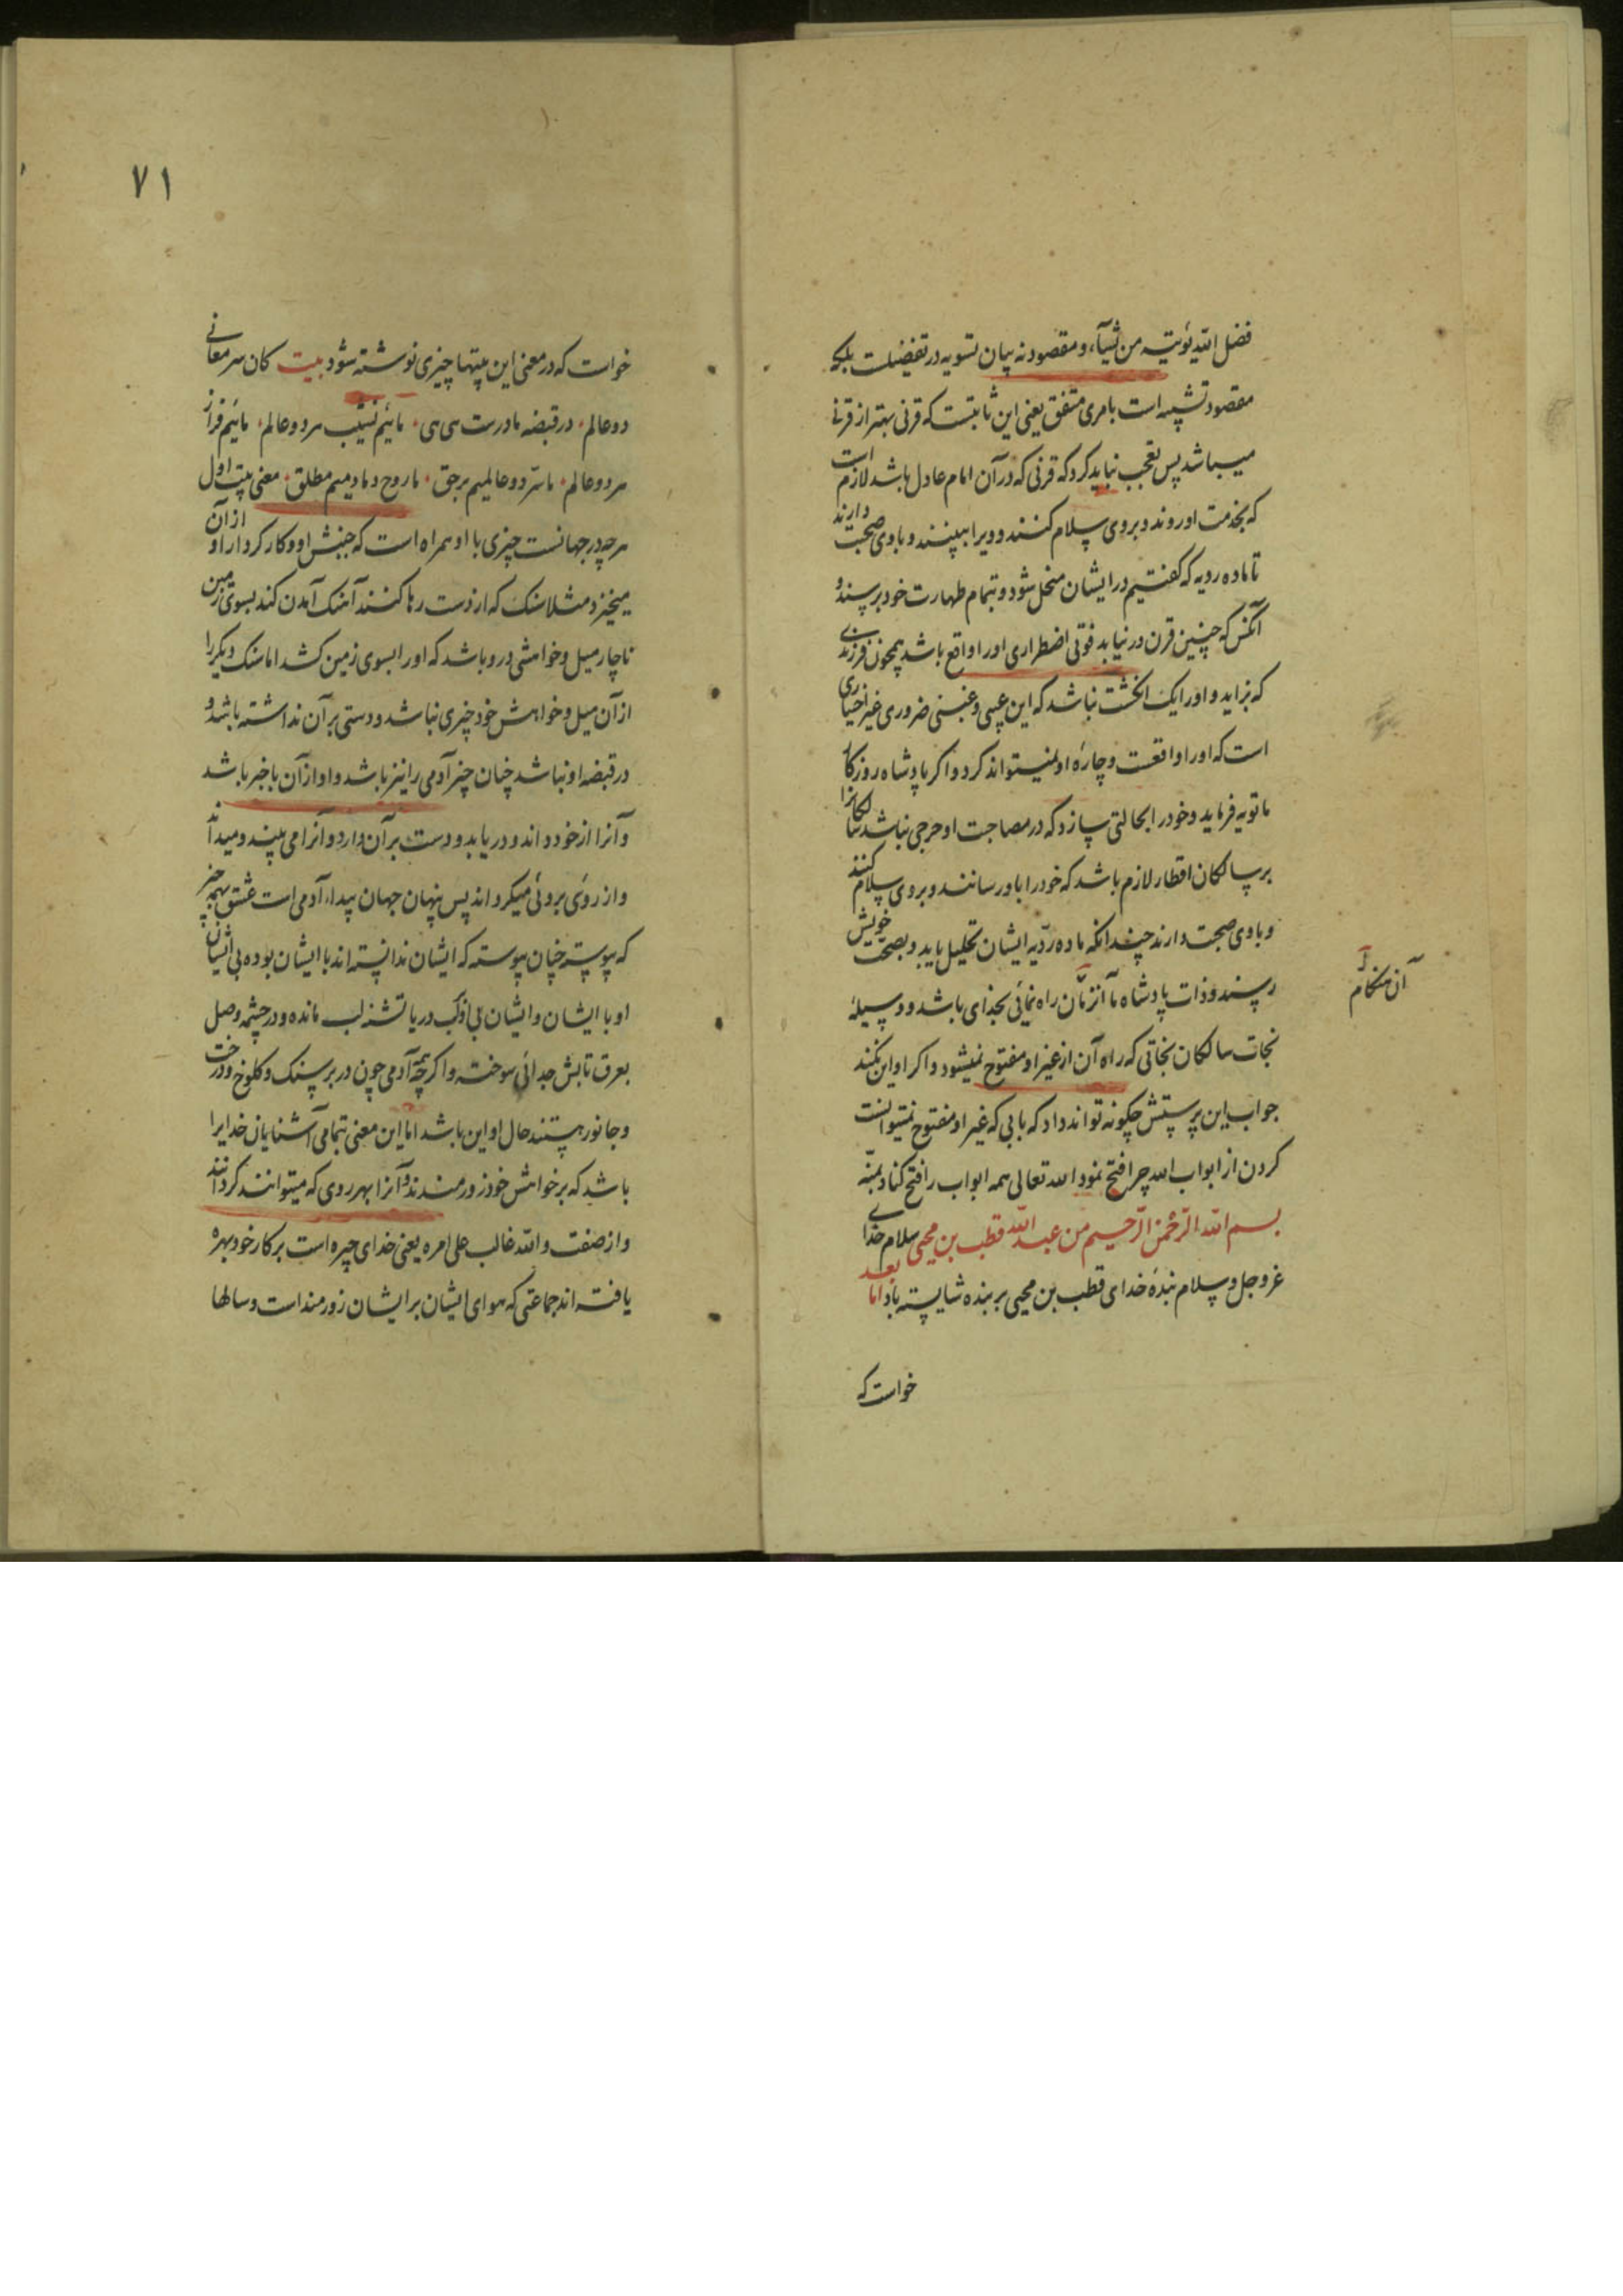 فضل الله یؤتیه من یشآء، و مقصود نه بیان تسویه در تفضیلت بلکه
مقصود تشبیه است بامری متفق یعنی این ثابتست که قرنی بهتر از قرنی
میباشد پس تعجب نباید کرد که قرنی که در آن امام عادل باشد لازم است
که بخدمت او روند و بر وی سلام کنند و ویرا ببینند و با وی صحبت دارند
تا ماده ردیه که گفتیم در ایشان منحل شود و بتمام طهارت خود برسند و
آنکس که چنین قرن در نیابد فوتی اضطراری او را واقع باشد همچون فرزندی
که بزاید و او را یک انگشت نباشد که این عیبی و غبنی ضروری غیر اختیاری
است که او را واقعست و چارهٔ او نمیتواند کرد و اگر پادشاه روزگار
ما توبه فرماید و خود را بحالتی سازد که در مصاحبت او حرجی نباشد سالکانرا
بر سالکان اقطار لازم باشد که خود را باو رسانند و بر وی سلام کنند
و با وی صحبت دارند چندانکه ماده ردّیه ایشان تحلیل یابد و بصحت خویش
رسند و ذات پادشاه ما آنزمان راه نمائی بخدای باشد و وسیلهٔ
آن هنگام
نجات سالکان نجاتی که راه آن از غیر او مفتوح نمیشود و اگر او این نکند
جواب این پرستش چگونه تواند داد که بابی که غیر او مفتوح نمیتوانست
کردن از ابواب الله چرا فتح ننمود الله تعالی همه ابواب را فتح کناد بمنّه
بسم الله الرّحمن الرّحیم من عبد الله قطب بن محیی سلام خدای
عز و جل و سلام بندهٔ خدای قطب بن محیی بر بنده شایسته باد اما بعد
خواست که
۷۱
خواست که در معنی این بیتها چیزی نوشته شود بیت کان سر معانی
دو عالم ٠ در قبضه مادرست هی هی ٠ مائیم نشیب هر دو عالم ٠ مائیم فراز
هر دو عالم ٠ ما سرّ دو عالمیم بر حق ٠ ما روح و ما دمیم مطلق ٠ معنی بیت اول
هر چه در جهانست چیزی با او همراه است که جنبش او و کار کردار او از آن
میخیزد مثلا سنک که از دست رها کنند آهنک آمدن کند بسوی زمین
ناچار میل و خواهشی درو باشد که او را بسوی زمین کشد اما سنک دیگر را
از آن میل و خواهش خود چیزی نباشد و دستی بر آن نداشته باشد و
در قبضه او نباشد چنان چیز آدمی را نیز باشد و او از آن با خبر باشد
و آنرا از خود داند و دریابد و دست بر آن دارد و آنرا می بیند و میداند
و از روئی بروئی میگرداند پس پنهان جهان پیدا، آدمی است عشق بهمه چیز
که پیوسته چنان پیوسته که ایشان ندانسته اند با ایشان بوده بی ایشان
او با ایشان و ایشان بی او لب دریا تشنه لب مانده و در چشمه وصل
بعرق تابش جدائی سوخته و اگر چه همه آدمی چون در بر سنک و کلوخ و درخت
و جانور هستند حال او این باشد اما این معنی بتمامی آشنایان خدایرا
باشد که بر خواهش خود زورمندند و آنرا بهر روی که میتوانند گردانند
و از صفت و الله غالب علی امره یعنی خدای چیره است بر کار خود بهره
یافته اند جماعتی که هوای ایشان بر ایشان زورمند است و سالها